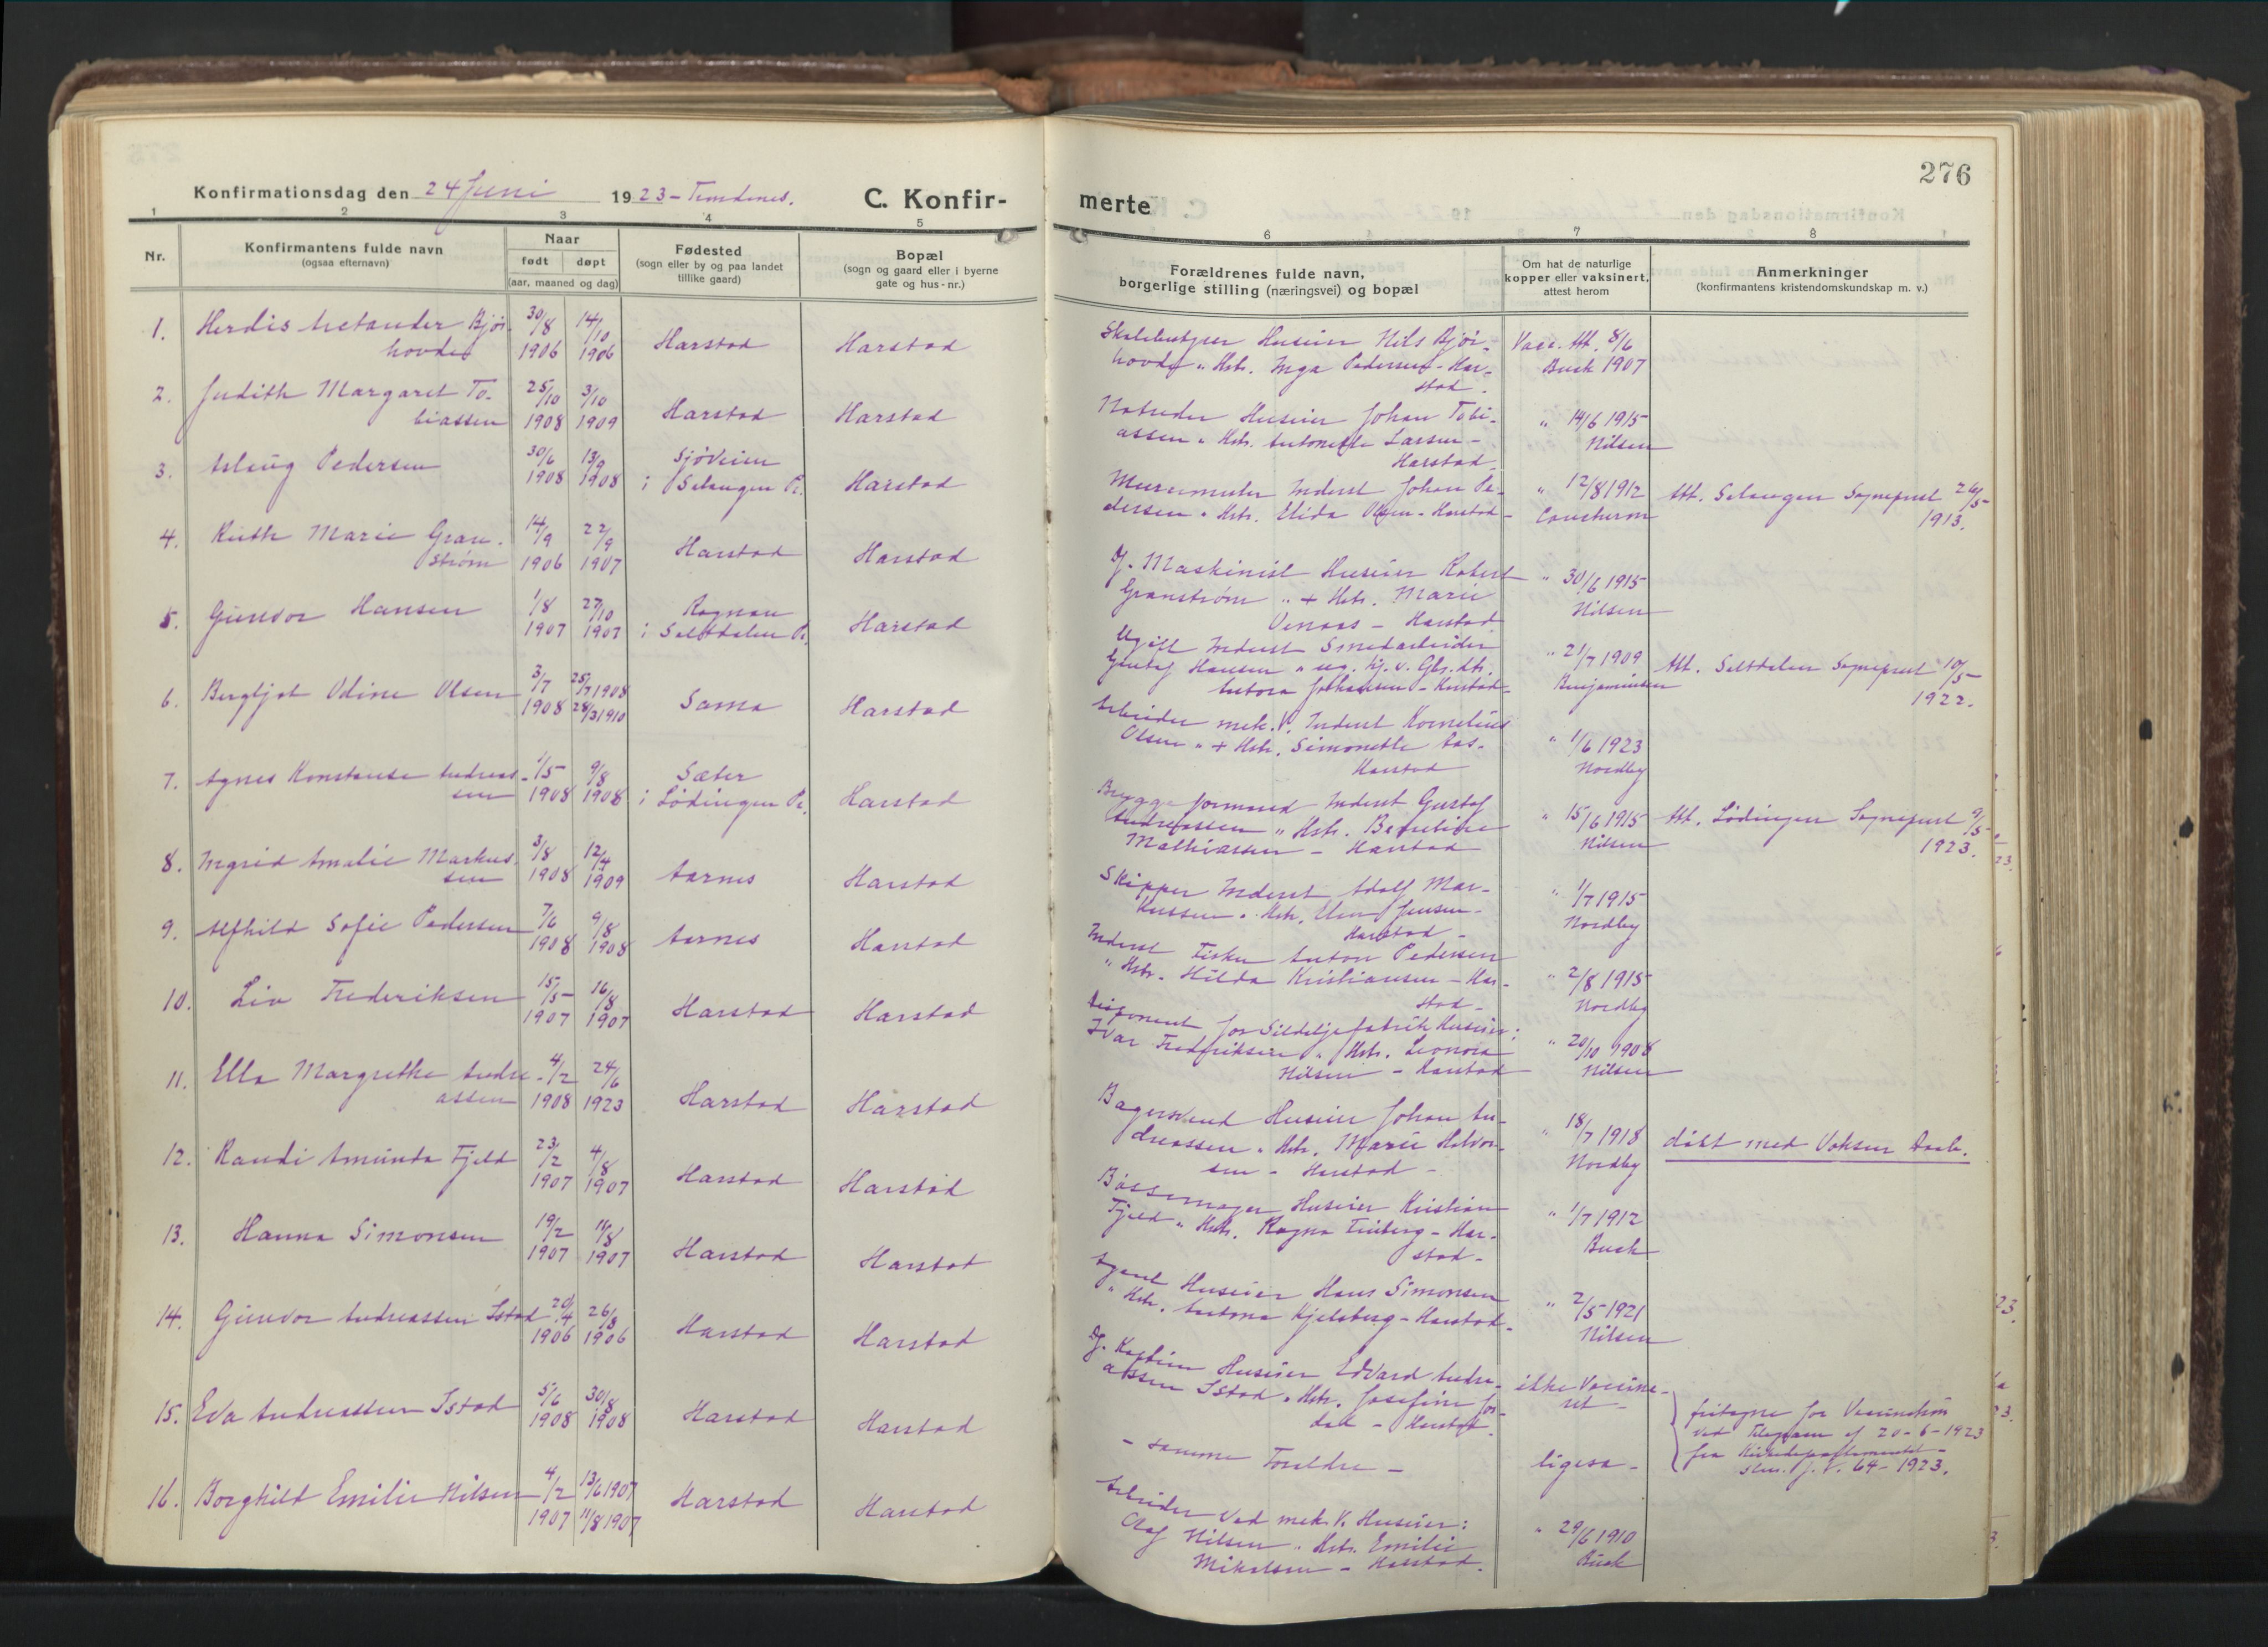 276
Konfirmationsdag den 24 Juni 1923 – Trondenes.
C. Konfir-
merte
1 2 3 4 5
6 7 8
Nr.
Konfirmantens fulde navn
(ogsaa efternavn)
Naar
født døpt
(aar, maaned og dag)
Fødested
(sogn eller by og paa landet
tillike gaard)
Bopæl
(sogn og gaard eller i byerne
gate og hus-nr.)
Forældrenes fulde navn,
borgerlige stilling (næringsvei) og bopæl
Om hat de naturlige
kopper eller vaksinert,
attest herom
Anmerkninger
(konfirmantens kristendomskundskap m. v.)
1. Herdis Bjør-
hovde 30/8 1906 14/10 1906 Harstad Harstad
Huseier Nils Bjør-
hovde " Hstr. Inga Pedersen – Har-
stad.
Vacc. Att. 8/6
Buck 1907
2. Judith Margaret To-
biassen 25/10 1908 3/10 1909 Harstad Harstad
Huseier Johan Tobi-
assen " Hstr. Antonette Larsen –
Harstad.
" 14/6 1915
Nilsen
3. Aslaug Pedersen 30/6 1908 13/9 1908 Sjøveien
i Salangen Pr. Harstad
Murermester Inderst Johan Pe-
dersen " Hstr. Elida Olsen – Harstad –
" 12/8 1912
Att. Salangen Sogneprest 26/5
1913.
4. Ruth Marie Gran-
strøm 14/9 1906 22/9 1907 Harstad Harstad
Maskinist Huseier Robert
Granstrøm " + Hstr. Marie
Harstad
" 30/6 1915
Nilsen
5. Gunvor Hansen 1/8 1907 27/10 1907 Rognan
i Saltdalen Pr. Harstad
Ugift Inderst Smedarbeider
Gustaf Hansen " ug. Pj. v. Gbr. dtr.
Antora Johansen – Harstad –
" 21/7 1909
Benjaminsen
Att. Saltdalen Sogneprest 10/5
1922.
6. Bergljot Odine Olsen 3/7 1908 25/7 1908
28/3 1910 Sama Harstad
Arbeider mek. V. Inderst Kornelius
Olsen " + Hstr. Simonette Aas-
Harstad
" 1/6 1923
Nordby
7. Agnes Konstanse Andreas-
sen 1/5 1908 9/8 1908 Sæter
i Lødingen Pr. Harstad
Brygge formand Inderst Gustaf
Andreassen " Hstr. Berntine
Mathiassen – Harstad
" 15/6 1915
Nilsen
Att. Lødingen Sogneprest 9/5
1923.
8. Ingrid Amalie Markus-
sen 3/8 1908 12/4 1909 Aarnes Harstad
Skipper Inderst Adolf Mar-
kussen " Hstr. Elen Jensen –
Harstad –
" 1/7 1915
Nordby
9. Alfhild Sofie Pedersen 7/6 1908 9/8 1908 Aarnes Harstad
Inderst Fisker Anton Pedersen
" Hstr. Hilda Kristiansen – Har-
stad –
" 2/8 1915
Nordby
10. Liv Frederiksen 15/5 1907 16/8 1907 Harstad Harstad
Disponent for Sildoljefabrik Huseier:
Ivar Fredriksen " Hstr. Leonora
Nilsen – Harstad
" 20/10 1908
Nilsen
11. Ella Margrethe Andre-
assen 4/2 1908 24/6 1923 Harstad Harstad
Bagersvend Huseier Johan An-
dreassen " Hstr. Marie Halvor-
sen – Harstad –
" 18/7 1918
Nordby
døbt med Voksen Daab.
12. Randi Amunda Fjeld 23/2 1907 4/8 1907 Harstad Harstad
Bøssemager Huseier Kristian
Fjeld " Hstr. Ragna Finberg – Har-
stad –
" 1/7 1912
Buck
13. Hanna Simonsen 19/2 1907 11/8 1907 Harstad Harstad
Agent Huseier Hans Simonsen
" Hstr. Antona Kjelsberg – Harstad –
" 2/5 1921
Nilsen
14. Gunvor Andreassen Istad 20/4 1906 26/8 1906 Harstad Harstad
Huseier Edvard Andre-
assen Istad " Hstr. Josefine Jor-
dal – Harstad.
ikke Vaccine-
ret –
15. Eva Andreassen Istad 5/6 1908 30/8 1908 Harstad Harstad
– samme Forældre –
ligesa –
fritagne for Vaccination
ved Telegram af 20-6-1923
fra Kirkedepartementet –
J. N. 64-1923.
16. Borghild Emilie Nilsen 4/2 1907 13/6 1907
11/8 1907 Harstad Harstad
Arbeider ved mek. V. Huseier:
Olaf Nilsen " Hstr. Emilie
Mikalsen – Harstad.
" 29/6 1910
Buck